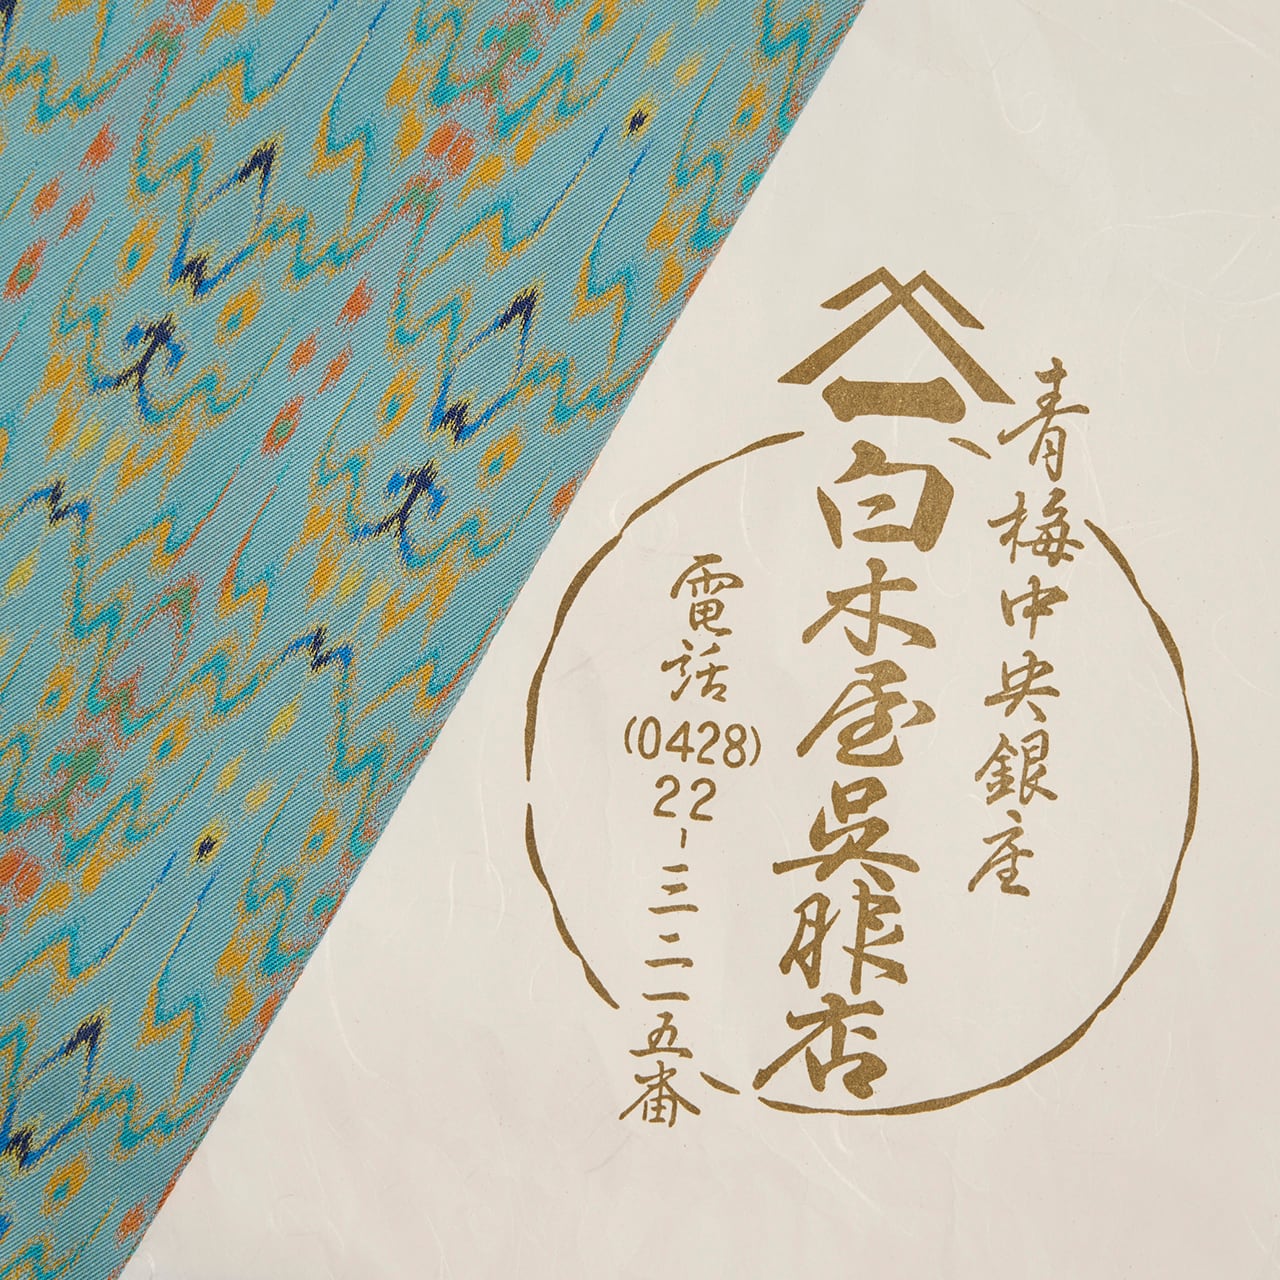 一
青梅中央銀座
白木屋呉服店
電話(0428)22-三二一五番